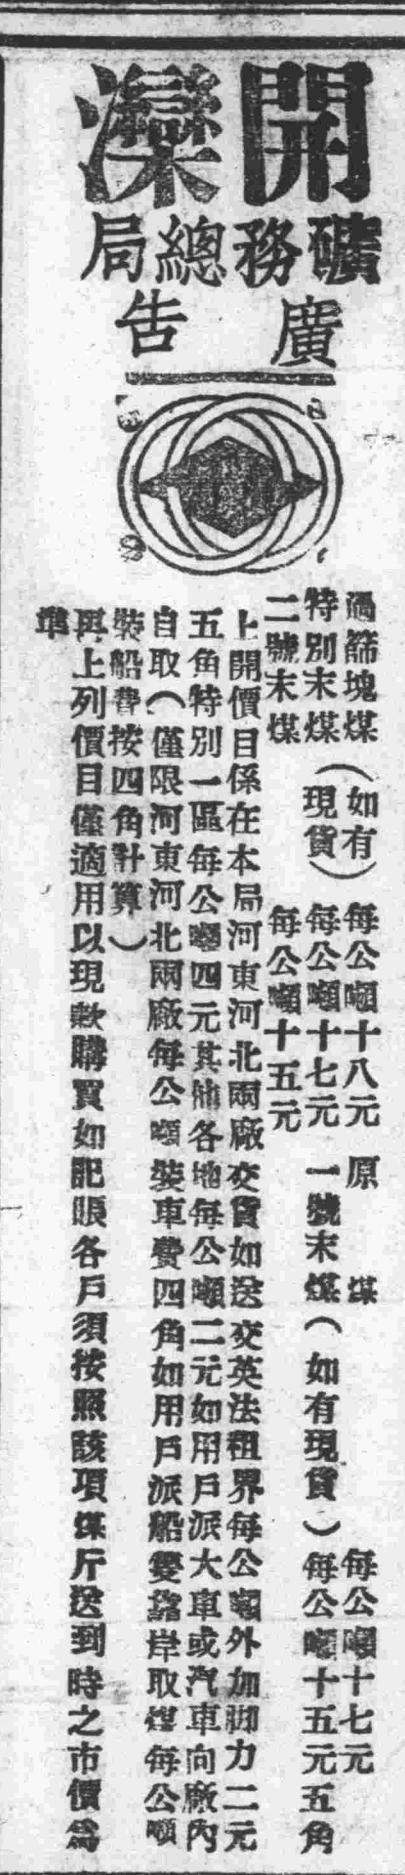 開灤
礦務總局
廣告
過篩塊煤（如有）每公噸十八元　原　煤　每公噸十七元
特別末煤（現貨）每公噸十七元　一號末煤（如有現貨）每公噸十五元五角
二號末煤　每公噸十五元
上開價目係在本局河東河北兩廠交貨如送交英法租界每公噸外加脚力二元
五角特別一區每公噸四元其他各地每公噸二元如用戶派大車或汽車向廠內
自取（僅限河東河北兩廠每公噸裝車費四角如用戶派船隻靠岸取煤每公噸
裝船費按四角計算）
再上列價目僅適用以現款購買如記賬各戶須按照該項煤斤送到時之市價爲
準